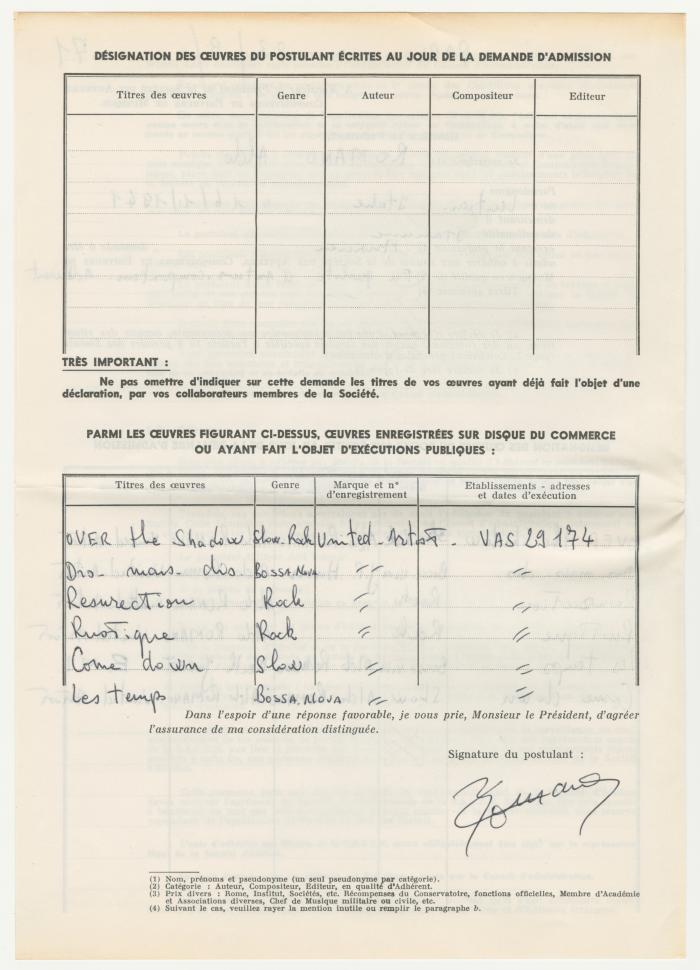 DÉSIGNATION DES ŒUVRES DU POSTULANT ÉCRITES AU JOUR DE LA DEMANDE D'ADMISSION
Titres des œuvres Genre Auteur Compositeur Editeur
TRÈS IMPORTANT :
Ne pas omettre d'indiquer sur cette demande les titres de vos œuvres ayant déjà fait l'objet d'une
déclaration, par vos collaborateurs membres de la Société.
PARMI LES ŒUVRES FIGURANT CI-DESSUS, ŒUVRES ENREGISTRÉES SUR DISQUE DU COMMERCE
OU AYANT FAIT L'OBJET D'EXÉCUTIONS PUBLIQUES :
Titres des œuvres Genre Marque et n° d'enregistrement Etablissements - adresses et dates d'exécution
OVER the Shadow Slow-Rock United-Artist - VAS 29174
Dis-mais-dis BOSSA.NOVA " "
Resurection Rock " "
Rustique Rock " "
Come down Slow " "
Les temps BOSSA.NOVA " "
Dans l'espoir d'une réponse favorable, je vous prie, Monsieur le Président, d'agréer
l'assurance de ma considération distinguée.
Signature du postulant :
Romano
(1) Nom, prénoms et pseudonyme (un seul pseudonyme par catégorie).
(2) Catégorie : Auteur, Compositeur, Editeur, en qualité d'Adhérent.
(3) Prix divers : Rome, Institut, Sociétés, etc. Récompenses du Conservatoire, fonctions officielles, Membre d'Académie
et Associations diverses, Chef de Musique militaire ou civile, etc.
(4) Suivant le cas, veuillez rayer la mention inutile ou remplir le paragraphe b.